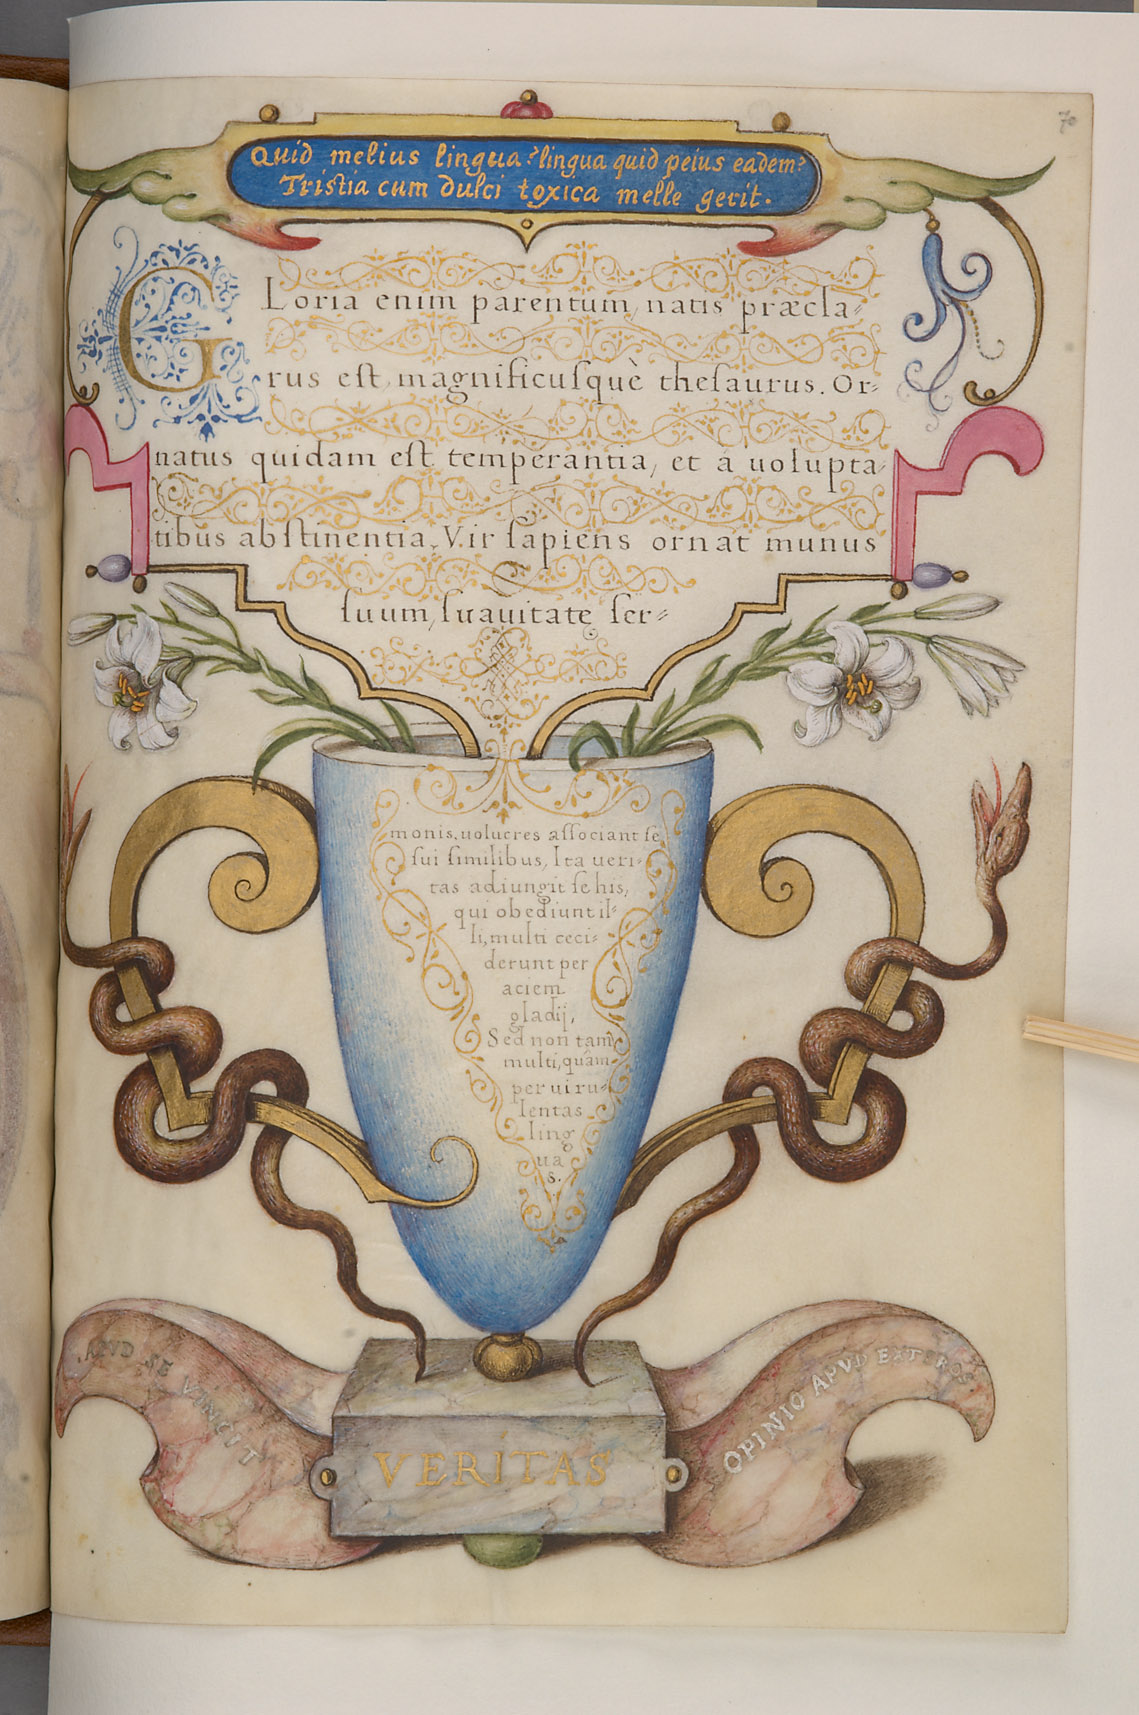 70
Quid melius lingua? lingua quid peius eadem?
Tristia cum dulci toxica melle gerit.
GLoria enim parentum, natis præcla-
rus est, magnificusquè thesaurus. Or-
natus quidam est temperantia, et á uolupta-
tibus abstinentia, Vir sapiens ornat munus
suum, suauitate ser-
monis, uolucres associant se
sui similibus, Ita ueri-
tas adiungit se his,
qui obediunt il-
li, multi ceci-
derunt per
aciem
gladij,
Sed non tam
multi, quàm
per uiru-
lentas
ling
ua
s.
APVD SE VINCIT
OPINIO APVD EXTEROS
VERITAS